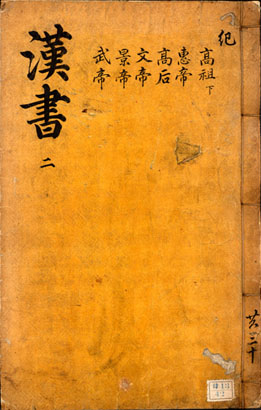 紀
高祖下
惠帝
高后
文帝
景帝
武帝
漢書
二
共三十